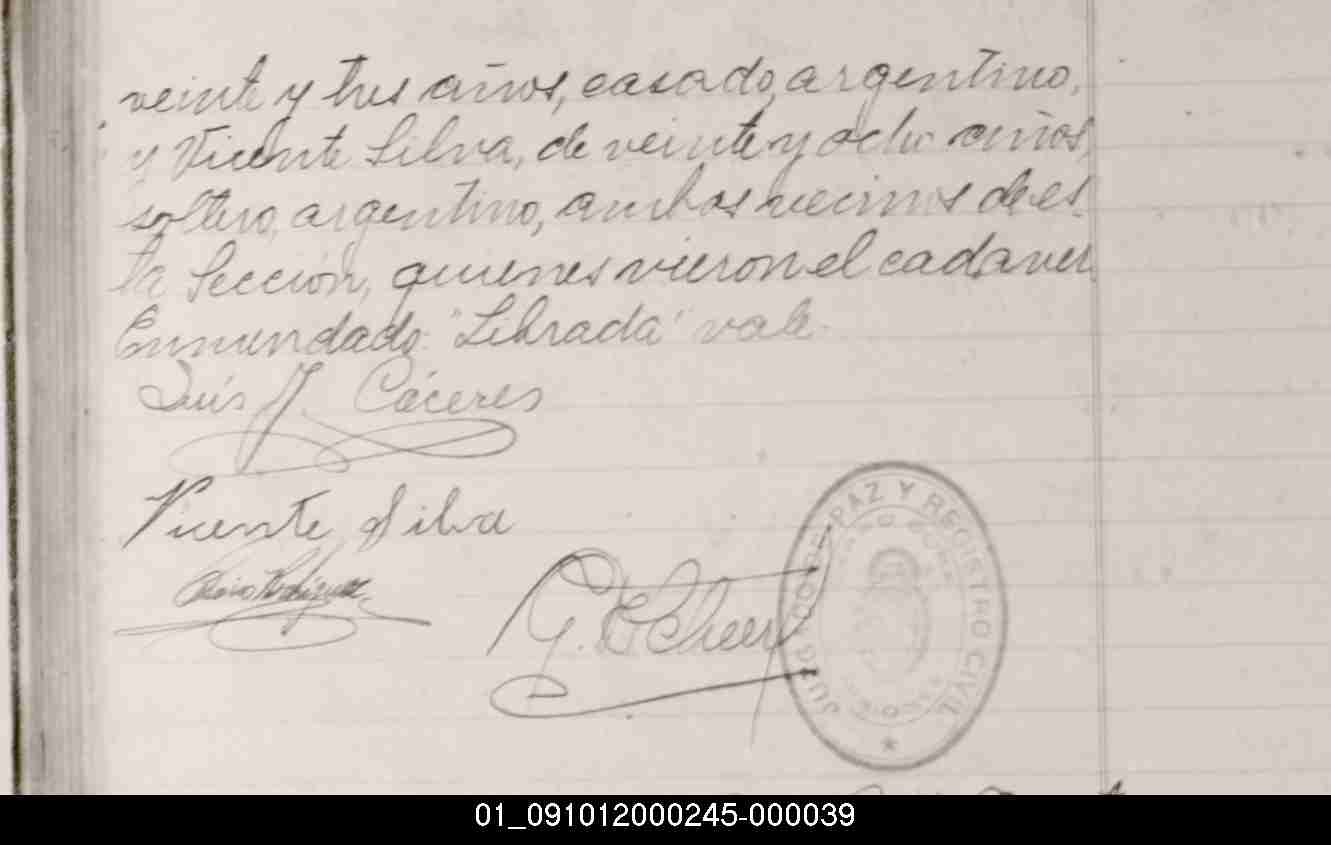 veinte y tres años, casado, argentino,
y Vicente Silva, de veinte y ocho años,
soltero, argentino, ambos vecinos de es-
ta Sección, quienes vieron el cadaver.
Enmendado: "Librada" vale.
Luis J. Cáceres
Vicente Silva
Rodriguez
G.
JUZGADO DE PAZ Y REGISTRO CIVIL
01_091012000245-000039